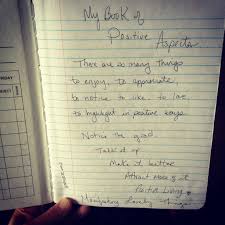 My Book of
Positive
Aspects
There are so many things
to enjoy, to appreciate,
to notice to like, to love,
to highlight in positive ways.
Notice the good.
Talk it up
Make it better
Attract More of it
Positive Living